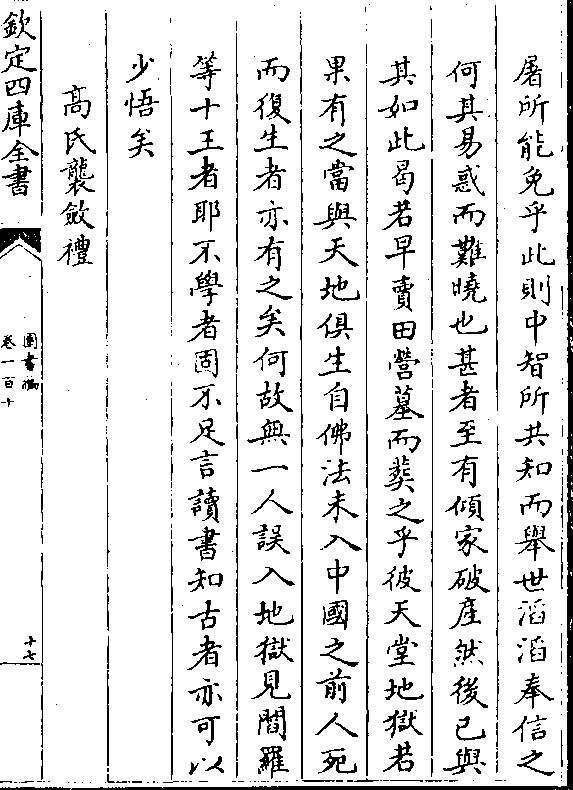 屠所能免乎此則中智所共知而舉世滔滔奉信之
何其易惑而難曉也甚者至有傾家破産然後已與
其如此曷若早賣田營墓而葬之乎彼天堂地獄若
果有之當與天地俱生自佛法未入中國之前人死
而復生者亦有之矣何故無一人誤入地獄見閻羅
等十王者耶不學者固不足言讀書知古者亦可以
少悟矣
高氏襲斂禮
欽定四庫全書
圖書編
卷一百十
十七